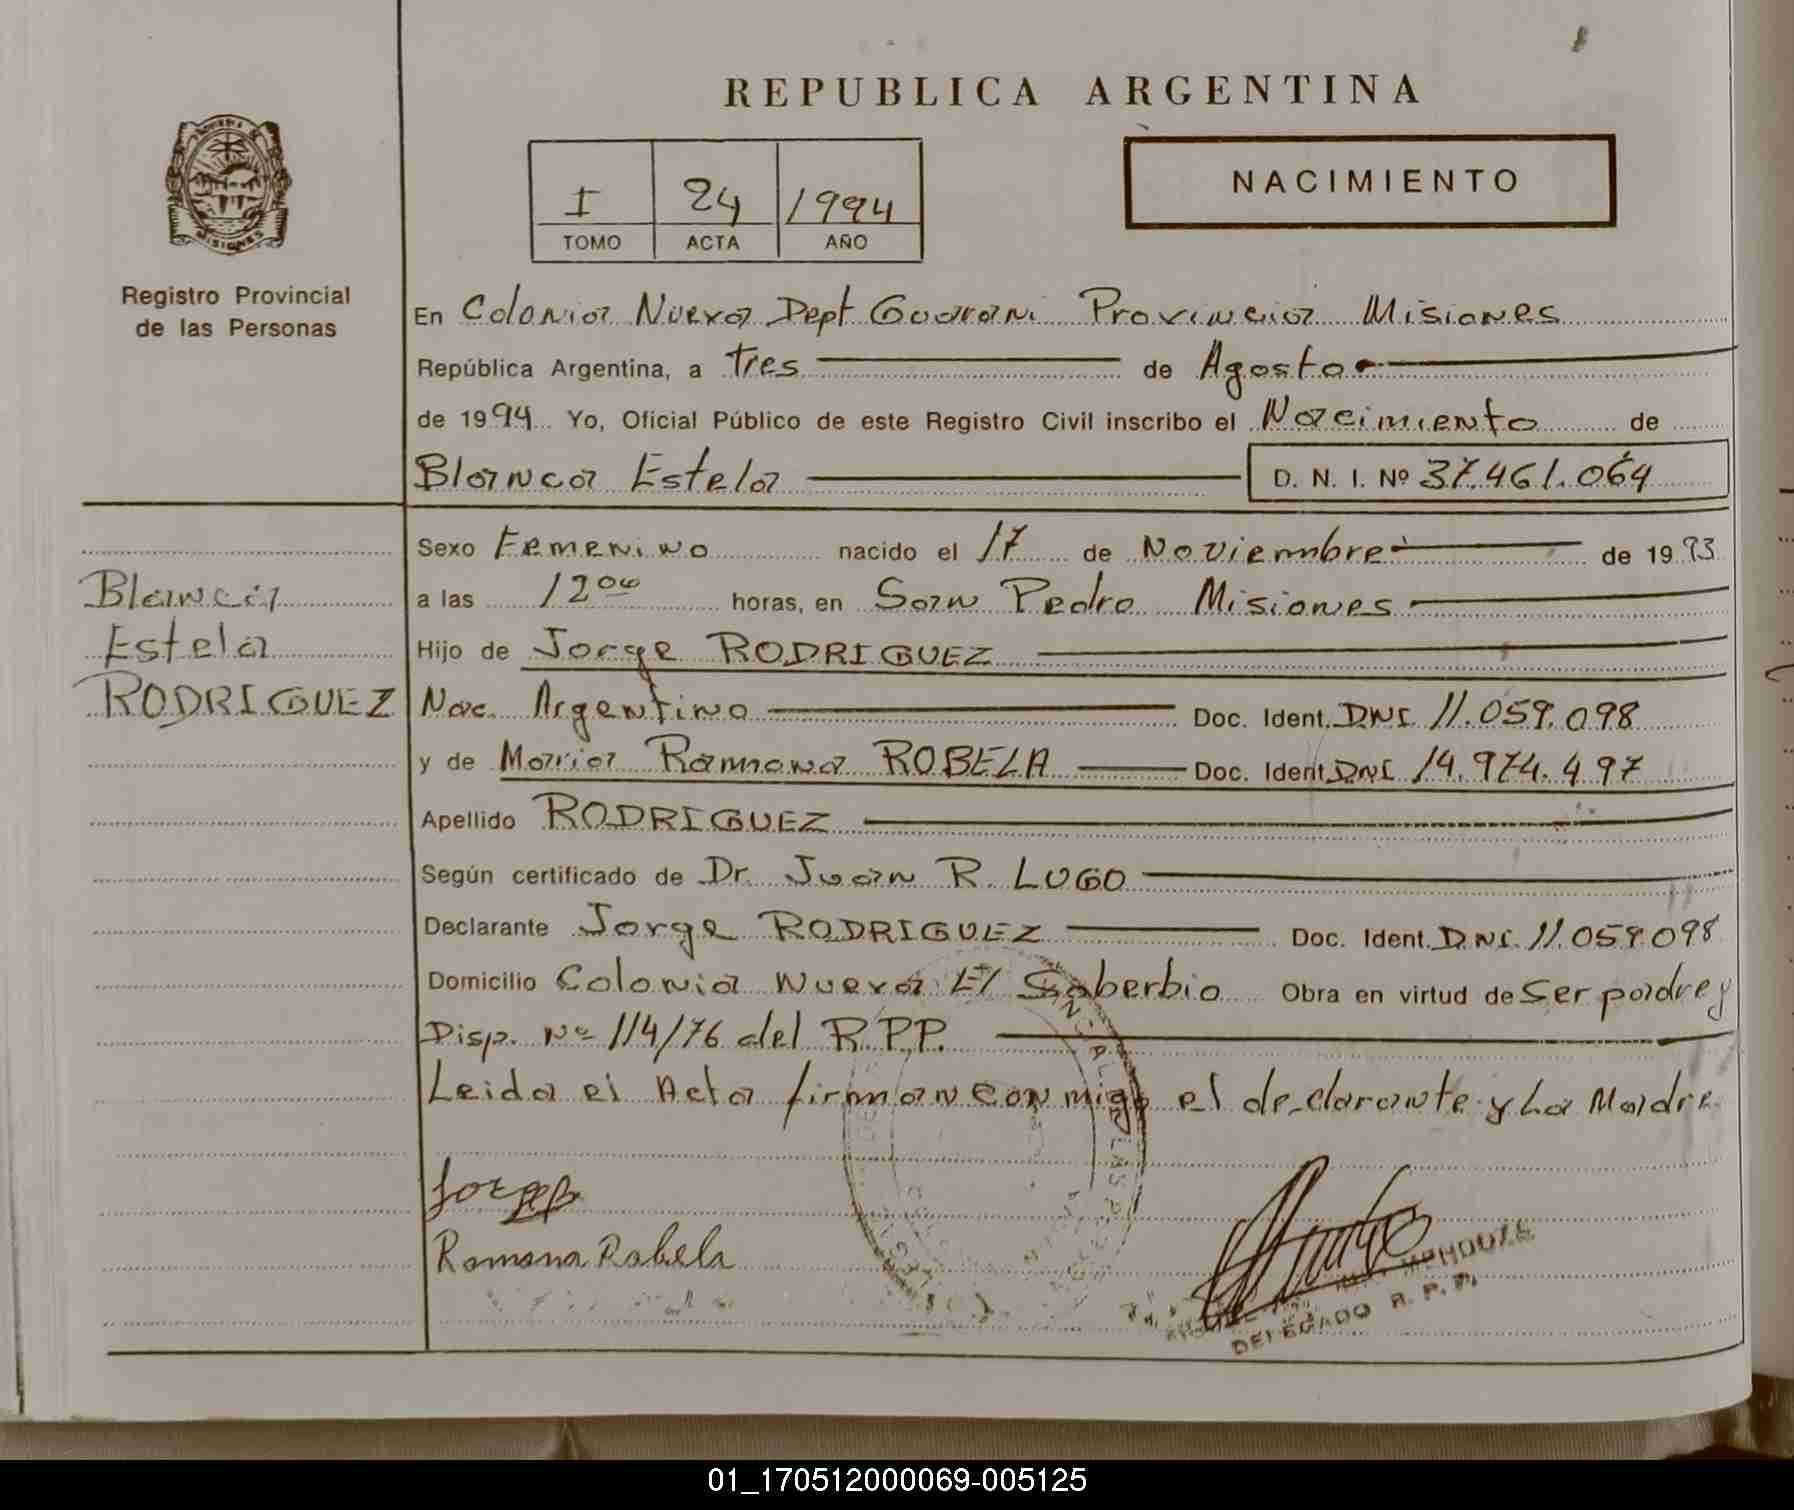 REPUBLICA ARGENTINA
I 24 1994
TOMO ACTA AÑO
NACIMIENTO
MISIONES
Registro Provincial
de las Personas
En Colonia Nueva Dept Guarani Provincia Misiones
República Argentina, a tres de Agosto
de 1994 Yo, Oficial Público de este Registro Civil inscribo el Nacimiento de
Blanca Estela D. N. I. Nº 37.461.064
Sexo Femenino nacido el 17 de Noviembre de 1993
a las 12 00 horas, en San Pedro Misiones
Hijo de Jorge RODRIGUEZ
Nac. Argentino Doc. Ident. DNI 11.059.098
y de Maria Ramona ROBELA Doc. Ident. DNI 14.974.497
Apellido RODRIGUEZ
Según certificado de Dr. Juan R. LUGO
Declarante Jorge RODRIGUEZ Doc. Ident. D.N.I. 11.059.098
Domicilio Colonia Nueva El Soberbio Obra en virtud de Ser padre y
Disp. Nº 114/76 del R.P.P.
Leida el Acta firman conmigo el declarante y La Madre
Blanca
Estela
RODRIGUEZ
Jorge
Ramona Rabela
DELEGADO R. P. P.
01_170512000069-005125